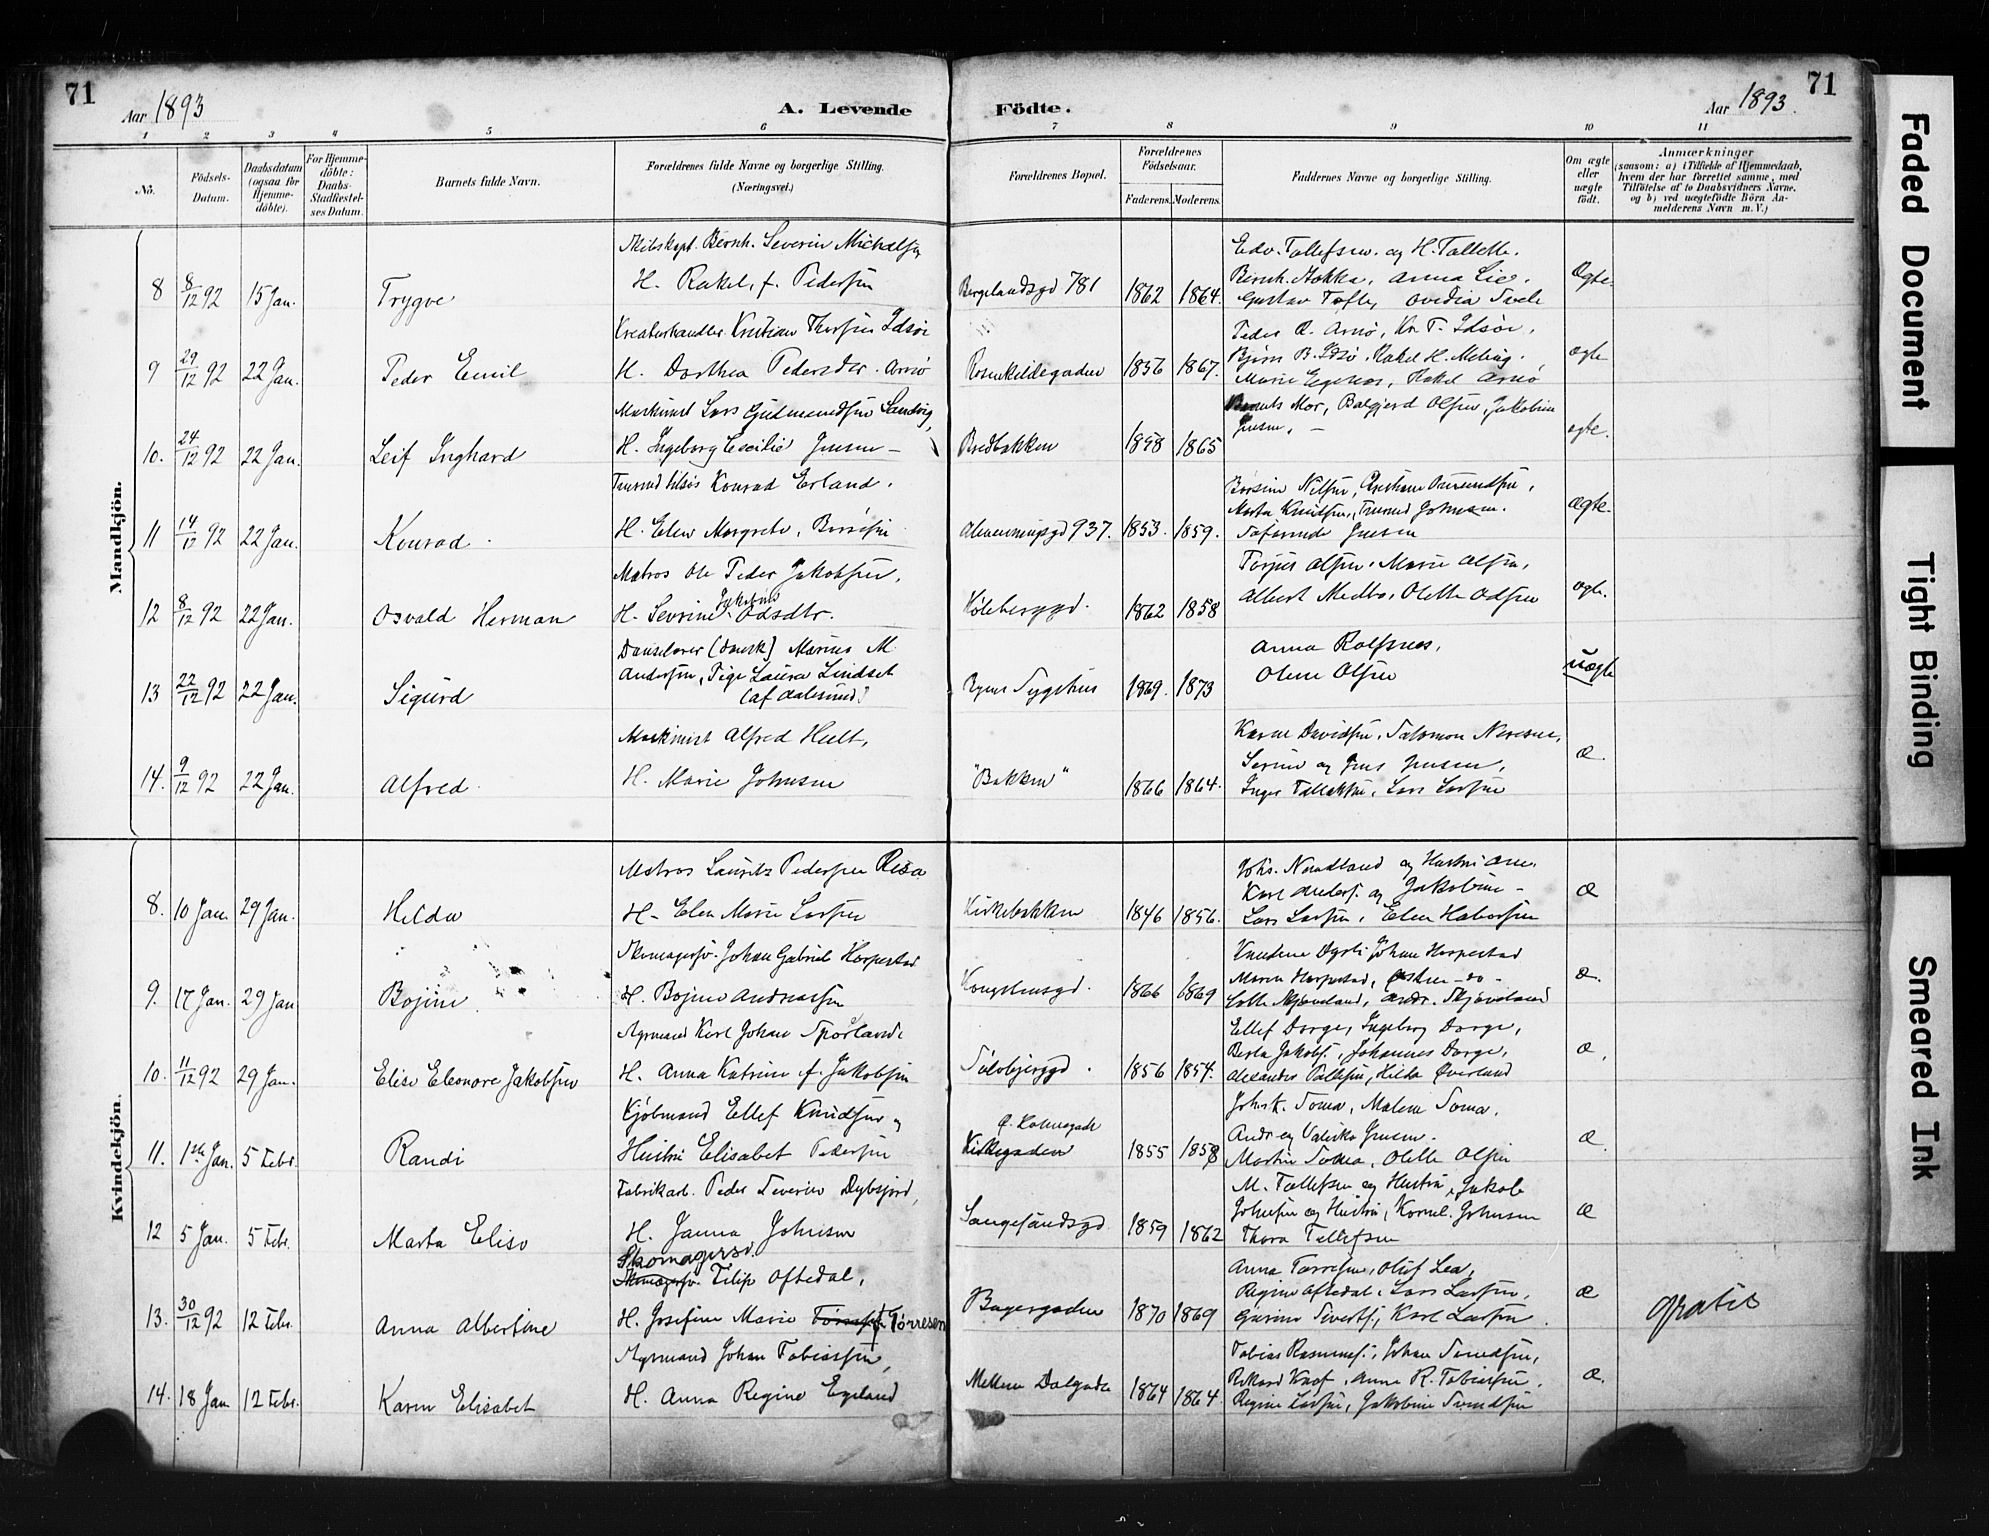 71
Aar 1893
A. Levende Födte.
Aar 1893.
71
1 2 3 4 5 6 7 8 9 10 11
No.
Födsels-Datum.
Daabsdatum (ogsaa for Hjemme-döbte).
For Hjemme-döbte: Daabs-Stadfæstel-ses Datum.
Barnets fulde Navn.
Forældrenes fulde Navne og borgerlige Stilling.
(Næringsvei.)
Forældrenes Bopæl.
Forældrenes Födselsaar.
Faderens. Moderens.
Faddernes Navne og borgerlige Stilling.
Om ægte eller uægte födt.
Anmærkninger
(saasom: a) i Tilfælde af Hjemmedaab,
hvem der har forrettet samme, med
Tilföielse af to Daabsvidners Navne.
og b) ved uægtefödte Börn An-
melderens Navn m. V.)
Mandkjön.
8 8/12 92 15 Jan. Trygve
Skibskapt. Bernh. Severin Michelsen
H. Rakel, f. Pedersen
Bergelandsgd 781 1862 1864.
Edv. Tollefsen og H. Tollette.
Bernh. Hokka, Anna Lie.
Gustav Tofte, Ovedia
Ægte.
9 29/12 92 22 Jan. Peder Emil
Kreaturhandler Kristian Thorsen Idsöe
H. Dorthea Pedersdtr. Arnö
Rosenkildegaden 1856 1867.
Peder R. Arnö, Kr. T. Idsöe,
Björn B. Idsö, Rakel H. Meling.
Marie Egenes, Rakel Arnö
ægte
10. 24/12 92 22 Jan. Leif Inghard
Maskinist Lars Gudmundsen Sandvig,
H. Ingeborg Cecilie Jensen –
Bredbakken 1858 1865
Barnets Mor, Bolgjerd Olsen, Jakobine
Jensen. –
ægte.
11 14/12 92 22 Jan. Konrad.
Tmrmd tilsös Konrad Erland.
H. Elen Margrete, Borresen
937. 1853. 1859.
Borsine Nilsen,
Marta Knudsen, Tmrmd Johnsen.
Jensen
Ægte.
12 8/12 92 22 Jan. Osvald Herman
Matros Ole Peder Jakobsen,
H. Sevrine Jakobine Odsdtr.
Höleberggd. 1862 1858
Torjus Olsen, Marie Olsen,
Albert Medbö, Olette Odsen
ægte.
13 22/12 92 22 Jan. Sigurd
Danselærer (dansk) Marius M.
Andersen, Pige Laura Lindset
(af Aalesund)
Byens Sygehus 1869. 1873
Anna Rolfsnes,
Olene Olsen
uægte
14. 9/12 92 22 Jan. Alfred.
Maskinist Alfred Hult,
H. Marie Johnsen
"Bakken" 1866 1864.
Karen Davidsen, Salomon
Serine og Jens Jensen,
Inger Tollaksen, Lars Larsen
Æ.
Kvindekjön.
8. 10 Jan. 29 Jan. Hilda
Matros Lauritz Pedersen Risa
H– Elen Marie Larsen
Kirkebakken 1846 1856.
Johs. Nordland og Hustru Ane.
Karl Anders. og Jakobine –
Lars Larsen, Elen Halvorsen
Æ
9. 17 Jan. 29 Jan Bojine.
Skomagersv. Johan Gabriel Horpestad
H. Bojine Andreassen
Kongstensgd. 1866 1869
Johan Horpestad
Maren Horpestad, –do–
Skjæveland, Andr. Skjæveland
Æ.
10. 11/12 92 29 Jan. Elise Eleonore Jakobsen
Styrmand Karl Johan Spörland.
H. Anna Katrine f. Jakobsen
Sölvbjerggd. 1856 1854.
Ellef Dorge, Ingeborg Dorge,
Berta Jakobs., Johannes Dorge,
Alexander Tollefsen, Hilda Överland
Æ.
11. 1ste Jan. 5 Febr. Randi
Kjöbmand Ellef Knudsen og
Hustru Elisabet Pedersen
Ö. Holmegade
Kirkegaden 1855 1858
Johs K. Soma, Malene Soma.
Andr og Valeska Jensen.
Martin Soma, Olette Olsen
Æ
12 5 Jan. 5 Febr. Marta Elise
Fabrikarb. Peder Severin Dybfjord,
H. Janna Johnsen
Langesundsgd 1859 1862
M. Tollefsen og Hustru, Jakob
Johnsen og Hustru, Kornel. Johnsen
Thora Tollefsen
Æ
13. 30/12 92 12 Febr. Anna Albertine
Skomagersv.
Skomagersv. Filip Oftedal,
H. Josefine Marie Törresen
Bagergaden 1870 1869
Anna Törresen, Oluf Lea,
Regine Oftedal, Lars Larsen,
Gurine Siverts., Karl Larsen.
Æ
gratis
14. 18 Jan 12 Febr. Karen Elisabet
Styrmand Johan Tobiassen,
H. Anna Regine Egeland
Mellem Dalgade 1864 1864.
Tobias Rasmuss., Johan Svendsen,
Rikard Knof, Anna R. Tobiassen.
Regine Larsen, Jakobine Svendsen
Æ.
Faded Document
Tight Binding
Smeared Ink